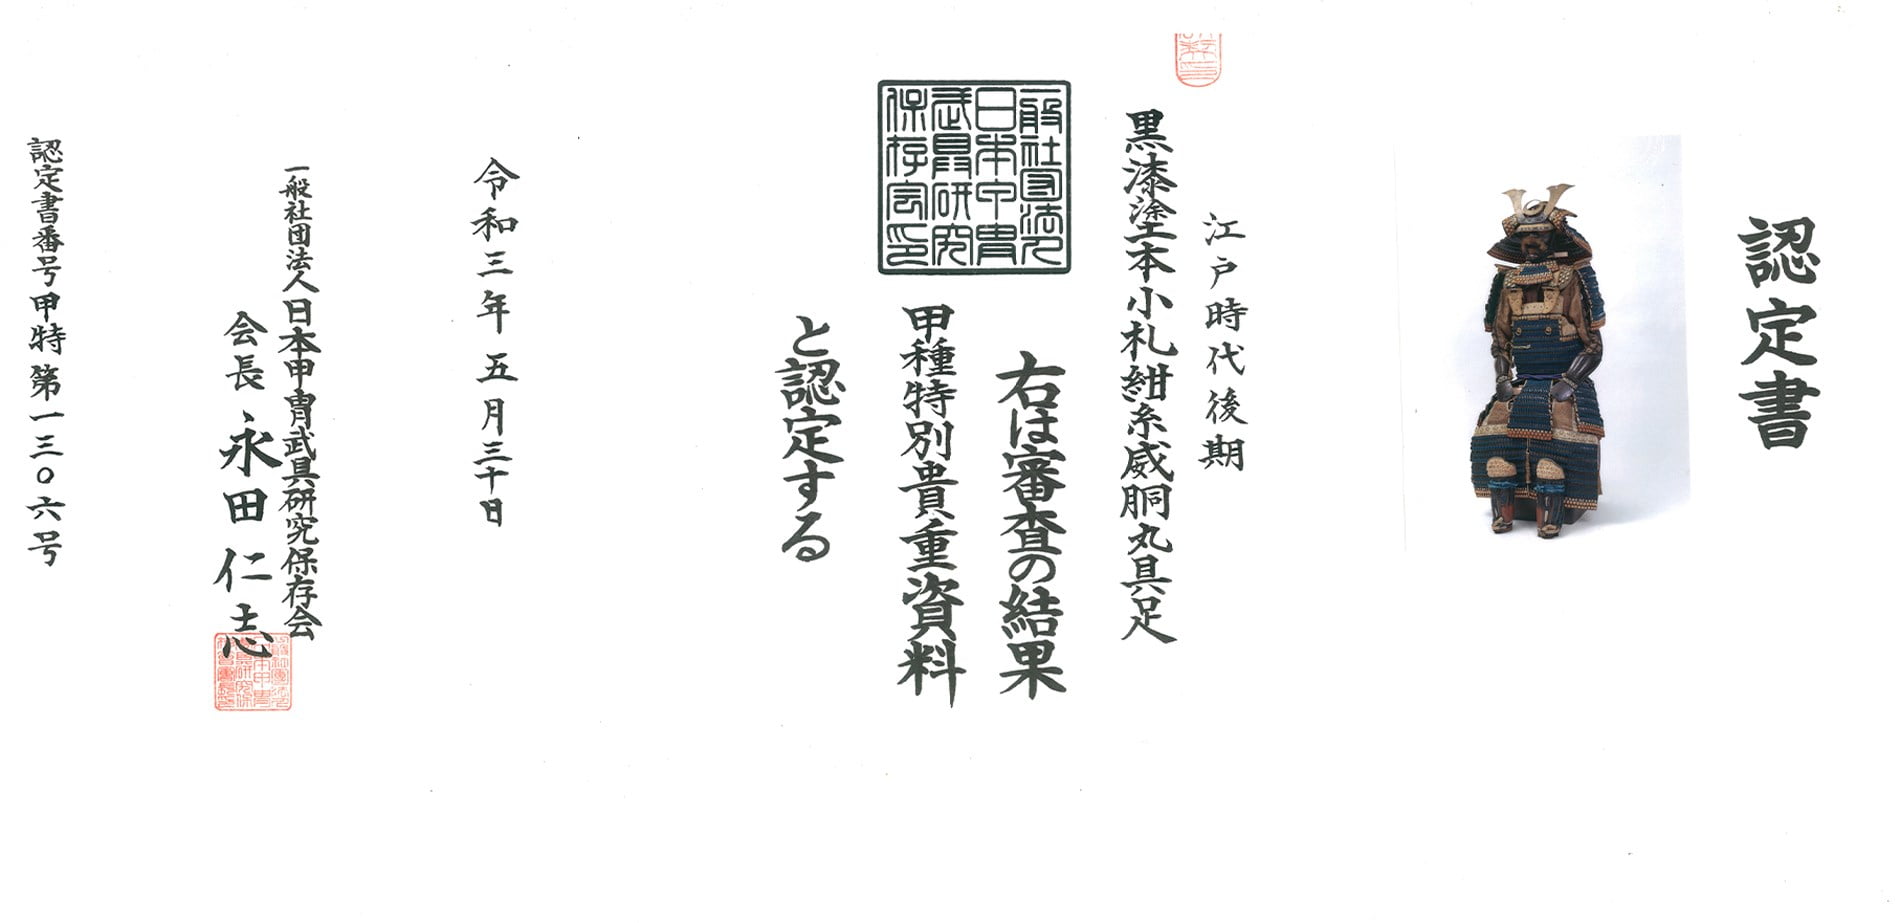 認定書
江戸時代後期
黒漆塗本小札紺糸威胴丸具足
右は審査の結果
甲種特別貴重資料
と認定する
一般社団法人
日本甲冑
武具研究
保存会印
令和三年五月三十日
一般社団法人日本甲冑武具研究保存会
会長、永田仁志
認定書番号甲特第一三〇六号